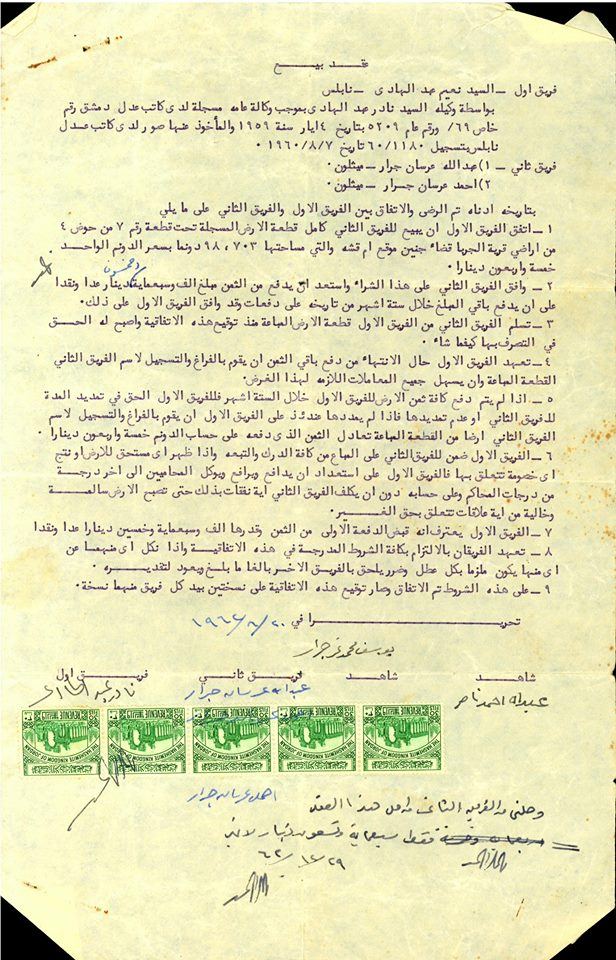 عقد بيع
فريق اول - السيد نعيم عبد الهادى - نابلس
بواسطة وكيله السيد نادر عبد الهادى بموجب وكالة عامه مسجلة لدى كاتب عدل دمشق رقم
خاص ٦٩/ ورقم عام ٥٢٠٩ بتاريخ ٤ ايار سنة ١٩٥٩ والمأخوذ عنها صور لدى كاتب عدل
نابلس بتسجيل ٦٠/١١٨٠ تاريخ ١٩٦٠/٨/٧ ٠
فريق ثاني - ١) عبدالله عرسان جرار - ميثلون ٠
٢) احمد عرسان جرار - ميثلون ٠
بتاريخه ادناه تم الرضى والاتفاق بين الفريق الاول والفريق الثاني على ما يلي
١ - اتفق الفريق الاول ان يبيع للفريق الثاني كامل قطعة الارض المسجلة تحت قطعة رقم ٧ من حوض ٤
من اراضي قرية الجربا قضاء جنين موقع ام قشه والتي مساحتها ٩٨،٧٠٣ دونما بسعر الدونم الواحد
خمسة واربعون دينارا ٠
وخمسون
٢ - وافق الفريق الثاني على هذا الشراء واستعد ان يدفع من الثمن مبلغ الف وسبعماية دينار عدا ونقدا
على ان يدفع باقي المبلغ خلال ستة اشهر من تاريخه على دفعات وقد وافق الفريق الاول على ذلك ٠
٣ - تسلم الفريق الثاني من الفريق الاول قطعة الارض المباعة منذ توقيع هذه الاتفاقية واصبح له الحق
في التصرف بها كيفما شاء ٠
٤ - تعهد الفريق الاول حال الانتهاء من دفع باقي الثمن ان يقوم بالفراغ والتسجيل لاسم الفريق الثاني
القطعة المباعة وان يسهل جميع المعاملات اللازمه لهذا الغرض ٠
٥ - اذا لم يتم دفع كافة ثمن الارض للفريق الاول خلال الستة اشهر فللفريق الاول الحق في تمديد المدة
للفريق الثاني او عدم تمديدها فاذا لم يمددها عندئذ على الفريق الاول ان يقوم بالفراغ والتسجيل لاسم
الفريق الثاني ارضا من القطعة المباعة تعادل الثمن الذى دفعه على حساب الدونم خمسة واربعون دينارا ٠
٦ - الفريق الاول ضمن للفريق الثاني على المباع من كافة الدرك والتبعه واذا ظهر اى مستحق للارض او نتج
اى خصومة تتعلق بها فالفريق الاول على استعداد ان يدافع ويرافع ويوكل المحامين الى اخر درجة
من درجات المحاكم وعلى حسابه دون ان يكلف الفريق الثاني اية نفقات بذلك حتى تصبح الارض سالمة
وخالية من اية علاقات تتعلق بحق الغير ٠
٧ - الفريق الاول يعترف انه قبض الدفعة الاولى من الثمن وقدرها الف وسبعماية وخسين دينارا عدا ونقدا
٨ - تعهد الفريقان بالالتزام بكافة الشروط المدرجة في هذه الاتفاقية واذا نكل اى منهما عن
اى منها يكون ملزما بكل عطل وضرر يلحق بالفريق الاخر بالغا ما بلغ ويعود لتقديره ٠
٩ - على هذه الشروط تم الاتفاق وصار توقيع هذه الاتفاقية على نسختين بيد كل فريق منهما نسخة ٠
تحريرا في
يوسف محمد جرار
شاهد شاهد فريق ثاني فريق اول
عبدالله احمد ناصر عبدالله عرسان جرار نادر عبد الهادي
REVENUE REVENUE REVENUE REVENUE REVENUE
THE HASHEMITE KINGDOM OF JORDAN THE HASHEMITE KINGDOM OF JORDAN THE HASHEMITE KINGDOM OF JORDAN THE HASHEMITE KINGDOM OF JORDAN THE HASHEMITE KINGDOM OF JORDAN
احمد عرسان جرار
وصلني من الفريق الثاني من اصل هذا العقد
فقط سبعماية وتسعون دينار لاغير
٦٢/١٢/٢٩